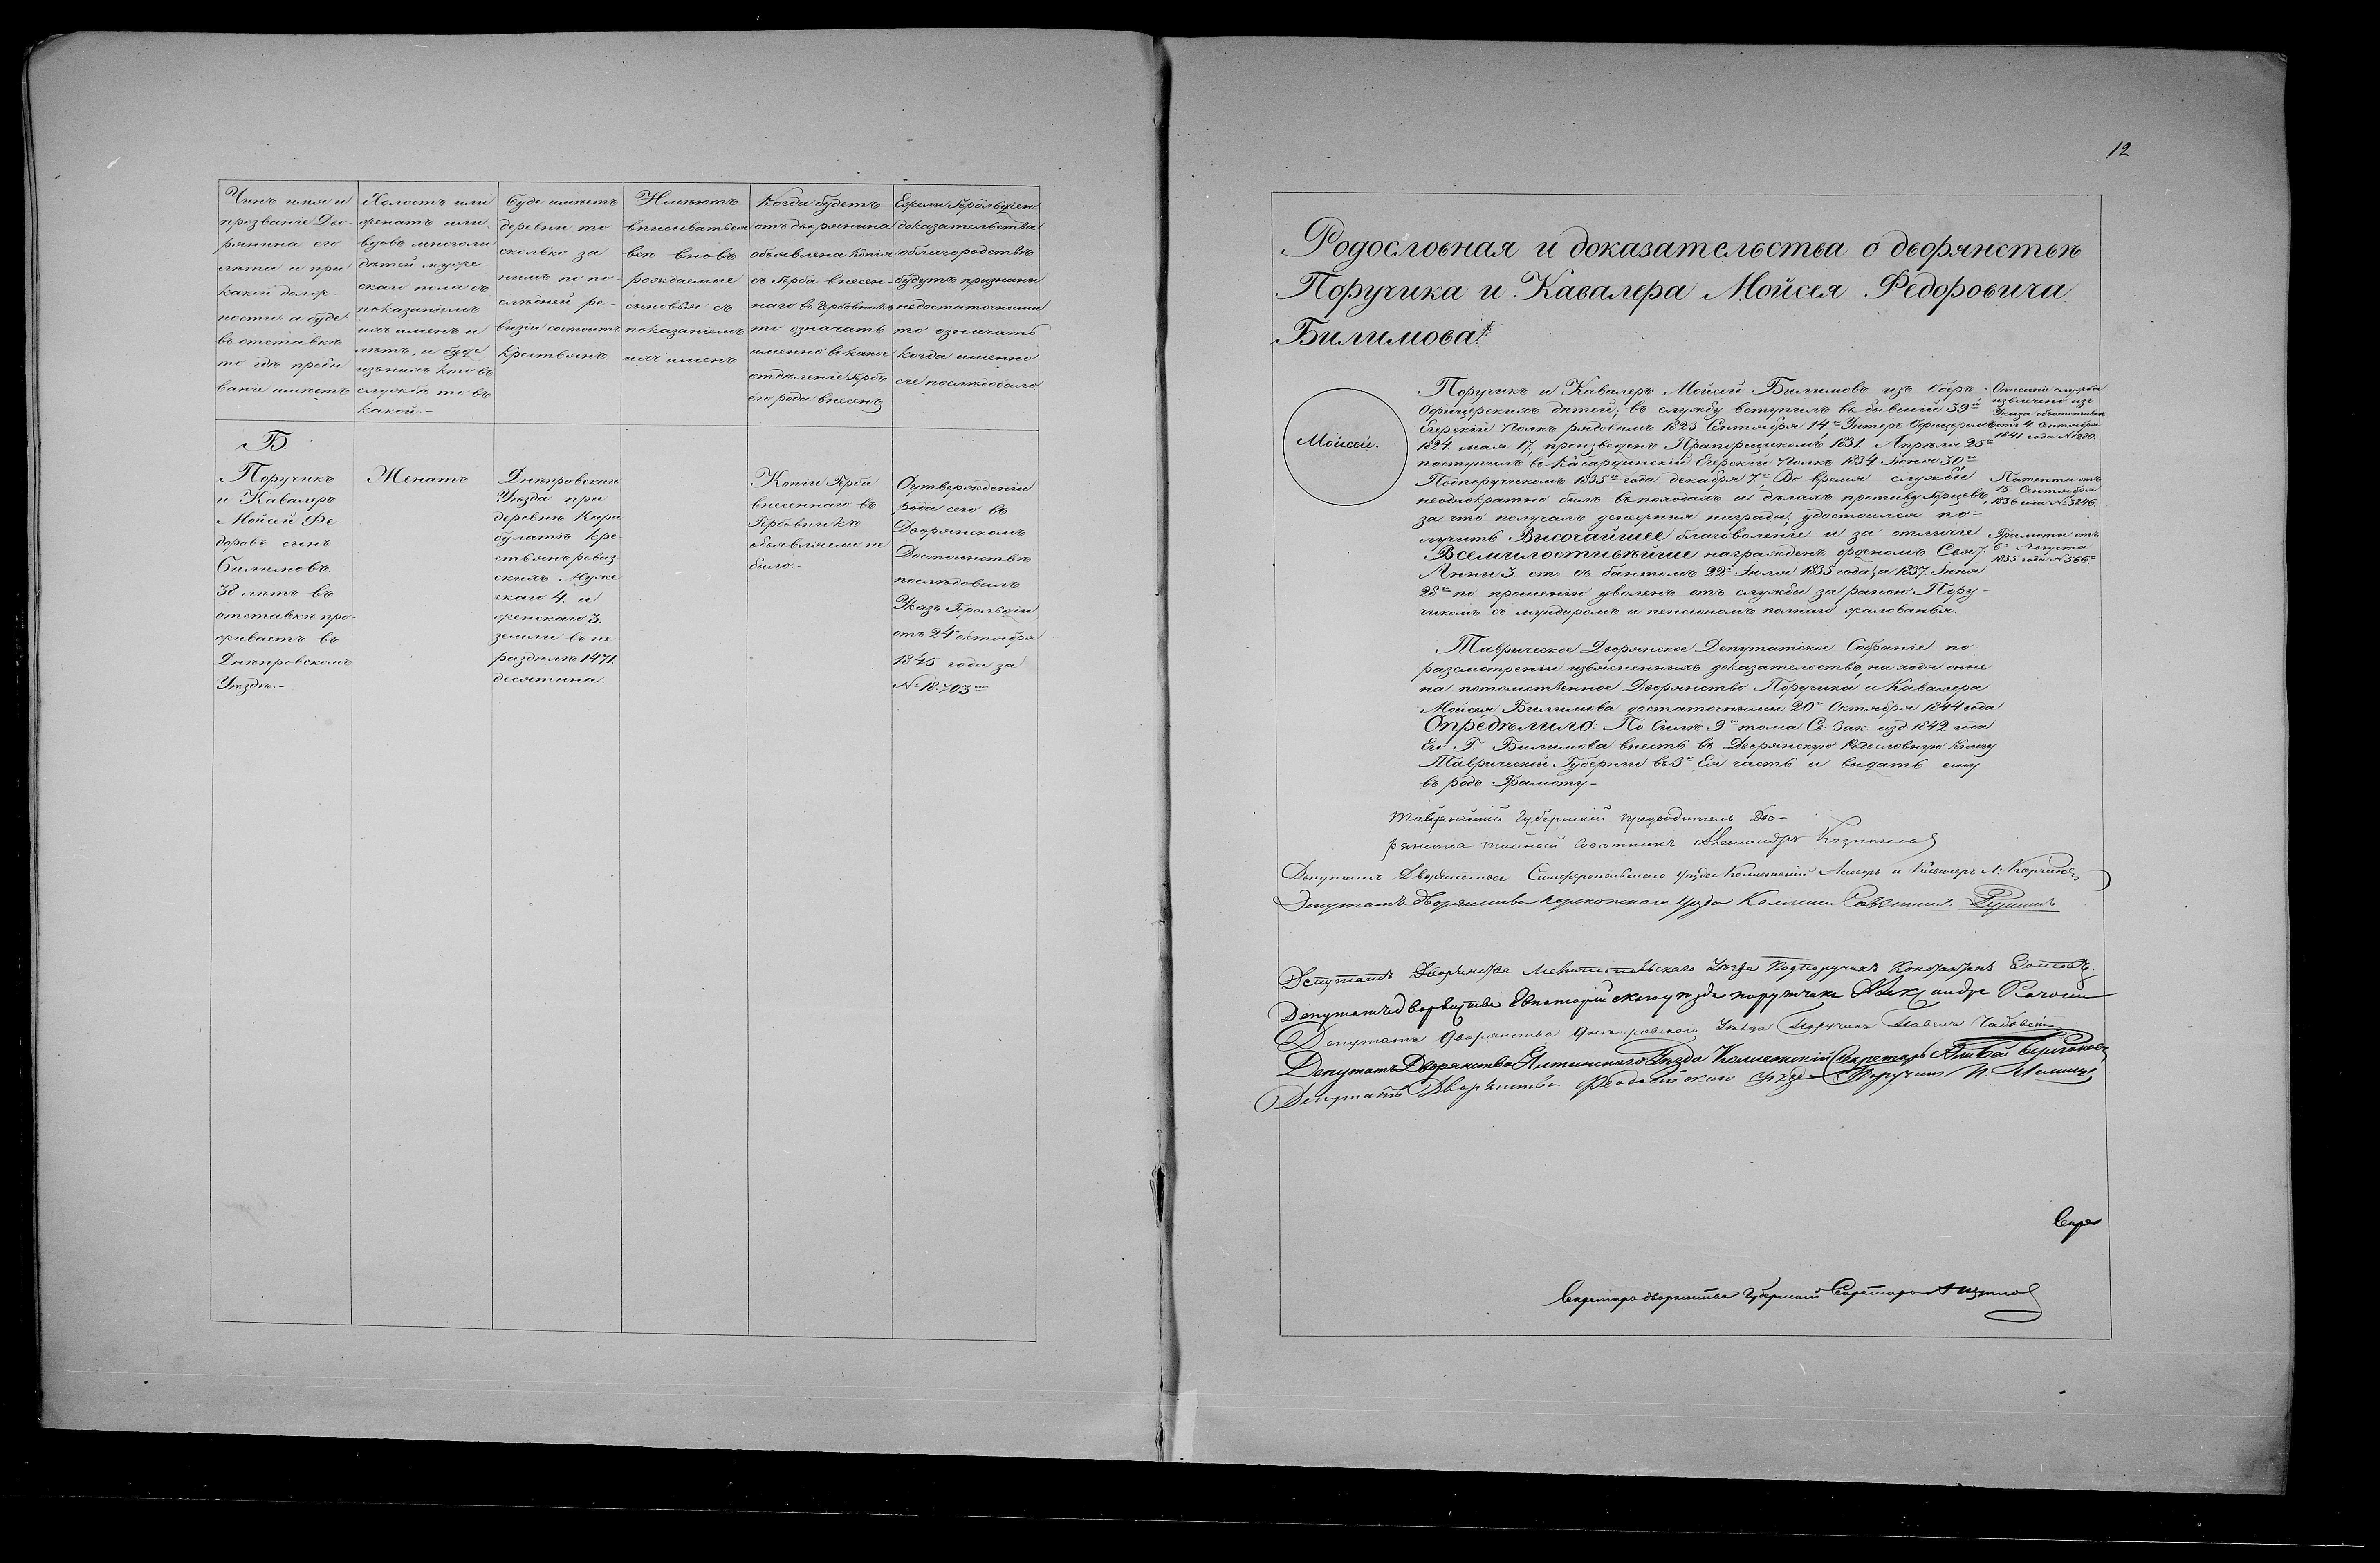 Чинъ имя и
прозваніе Дво-
рянина его
лѣта и при
какой долж-
ности а буде
въ отставкѣ
то гдѣ пребы
ваніе имѣетъ
Холостъ или
женатъ или
вдовъ много ли
дѣтей муже-
скаго пола съ
показаніемъ
ихъ именъ и
лѣтъ, и буде
изъ нихъ кто въ
службѣ то въ
какой.-
буде имѣетъ
деревни то
сколько за
нимъ по по-
слѣдней ре-
визіи состоитъ
крестьянъ
Имѣютъ
вписываться
всѣ вновь
рождаемые
сыновья съ
показаніемъ
ихъ именъ
Когда будетъ
отъ дворянина
объявлена копія
съ Герба внесен-
наго въ Гербовникъ
то означать
именно въ какое
отдѣленіе Гербъ
его рода внесенъ
Ежели Герольдіею
доказательства
облагородствѣ
будутъ признаны
недостаточными
то означить
когда именно
сіе послѣдовало
Б.
Поручикъ
и Кавалеръ
Мойсей Фе-
доровъ сынъ
Билимовъ.
38 лѣтъ въ
отставкѣ про-
живаетъ въ
Днѣпровскомъ
Уѣздѣ.-
Женатъ
Днѣпровскаго
Уѣзда при
деревнѣ Кара
булатъ кре-
стьянъ ревиз
скихъ Муже
скаго 4. и
женскаго 3.
земли въ не
раздѣлѣ 1471.
десятина.
Копіи Герба
внесеннаго въ
Гербовникъ
объявляемо не
было.-
О утвержденіи
рода сего въ
Дворянскомъ
Достоинствѣ
послѣдовалъ
Указъ Герольдіи
отъ 24 октября
1845 года за
№ 18.703
12
Родословная и доказательства о дворянствѣ
Поручика и Кавалера Мойсея Федоровича
Билимова.
Мойсей.
Поручикъ и Кавалеръ Мойсей Билимовъ изъ Оберъ-
Офицерскихъ дѣтей; въ службу вступилъ въ бывшій 39й
Егерскій Полкъ рядовымъ 1823 Сентября 14, Унтеръ Офицеромъ
1824. мая 17, произведенъ Прапорщикомъ 1831. Апрѣля 25
поступилъ въ Кабардинскій Егерскій Полкъ 1834 Іюня 30
Подпоручикомъ 1835 года декабря 7, Во время службы
неоднократно былъ въ походахъ и дѣлахъ противу Горцевъ,
за что получалъ денежныя награды, удостоился по-
лучить Высочайшее благоволеніе и за отличіе
Всемилостивѣйше награжденъ орденомъ Свят:
Анны 3. ст. съ бантомъ 22 Іюля 1835 года, а 1837. Іюня
28 по прошенію уволенъ отъ службы за раною Пору-
чикомъ съ мундиромъ и пенсіономъ полнаго жалованья.
Описаніе службы
извлечено изъ
Указа объ отставкѣ
отъ 4 Октября
1841 года № 1280.
Патента отъ
15 Сентября
1836 года № 5246.
Грамоты отъ
6 Августа
1835 года № 566.
Таврическое Дворянское Депутатское Собраніе по-
разсмотреніи изъясненныхъ доказательствъ, находя оные
на потомственное Дворянство Поручика и Кавалера
Мойсея Билимова достаточными 20 Октября 1844 года
Опредѣлило: По Силѣ 9 тома Св: Зак: изд 1842 года
Его Г. Билимова внесть въ Дворянскую Родословную Книгу
Таврической Губерніи въ 3 Ея часть и выдать ему
въ родъ Грамоту.-
Таврическій Губернскій предводитель Дво-
рянства тайный Совѣтникъ Александръ Казначеевъ
Депутатъ Дворянства Симферопольскаго уѣзда Коллежскій Асесоръ и Кавалеръ
Депутатъ Дворянства Перекопскаго Уѣзда Коллежск. Совѣтникъ
Депутатъ Дворянства Мелитопольскаго Уѣзда Подпоручикъ Константинъ
Депутатъ дворянства Евпаторійскаго уѣзда поручикъ Александръ
Депутатъ Дворянства Днѣпровскаго Уѣзда Поручикъ Павелъ
Депутатъ Дворянства Ялтинскаго Уѣзда Коллежскій Секретарь
Депутатъ Дворянства Феодосійскаго Уѣзда Поручикъ
Секре
Секретарь дворянства Губернскій Секретарь